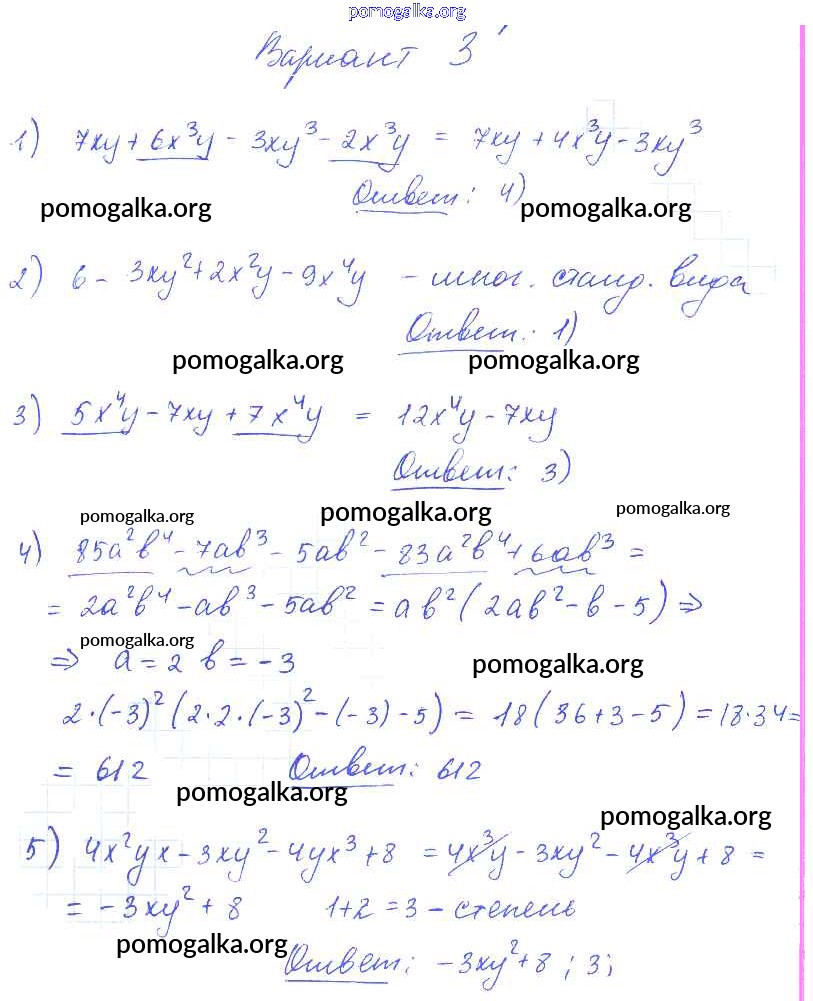 pomogalka.org
Вариант 3
1) 7xy + 6x³y - 3xy³ - 2x³y = 7xy + 4x³y - 3xy³
Ответ: 4)
pomogalka.org pomogalka.org
2) 6 - 3xy² + 2x²y - 9x⁴y - мног. станд. вида
Ответ: 1)
pomogalka.org pomogalka.org
3) 5x⁴y - 7xy + 7x⁴y = 12x⁴y - 7xy
Ответ: 3)
pomogalka.org pomogalka.org pomogalka.org
4) 85a²b⁴ - 7ab³ - 5ab² - 83a²b⁴ + 6ab³ =
= 2a²b⁴ - ab³ - 5ab² = ab²(2ab² - b - 5) ⇒
pomogalka.org
⇒ a = 2 b = -3
pomogalka.org
2·(-3)²(2·2·(-3)² - (-3) - 5) = 18(36 + 3 - 5) = 18·34 =
= 612 Ответ: 612
pomogalka.org
pomogalka.org
5) 4x²yx - 3xy² - 4yx³ + 8 = 4x³y - 3xy² - 4x³y + 8 =
= -3xy² + 8 1+2=3 - степень
pomogalka.org
Ответ: -3xy² + 8; 3;